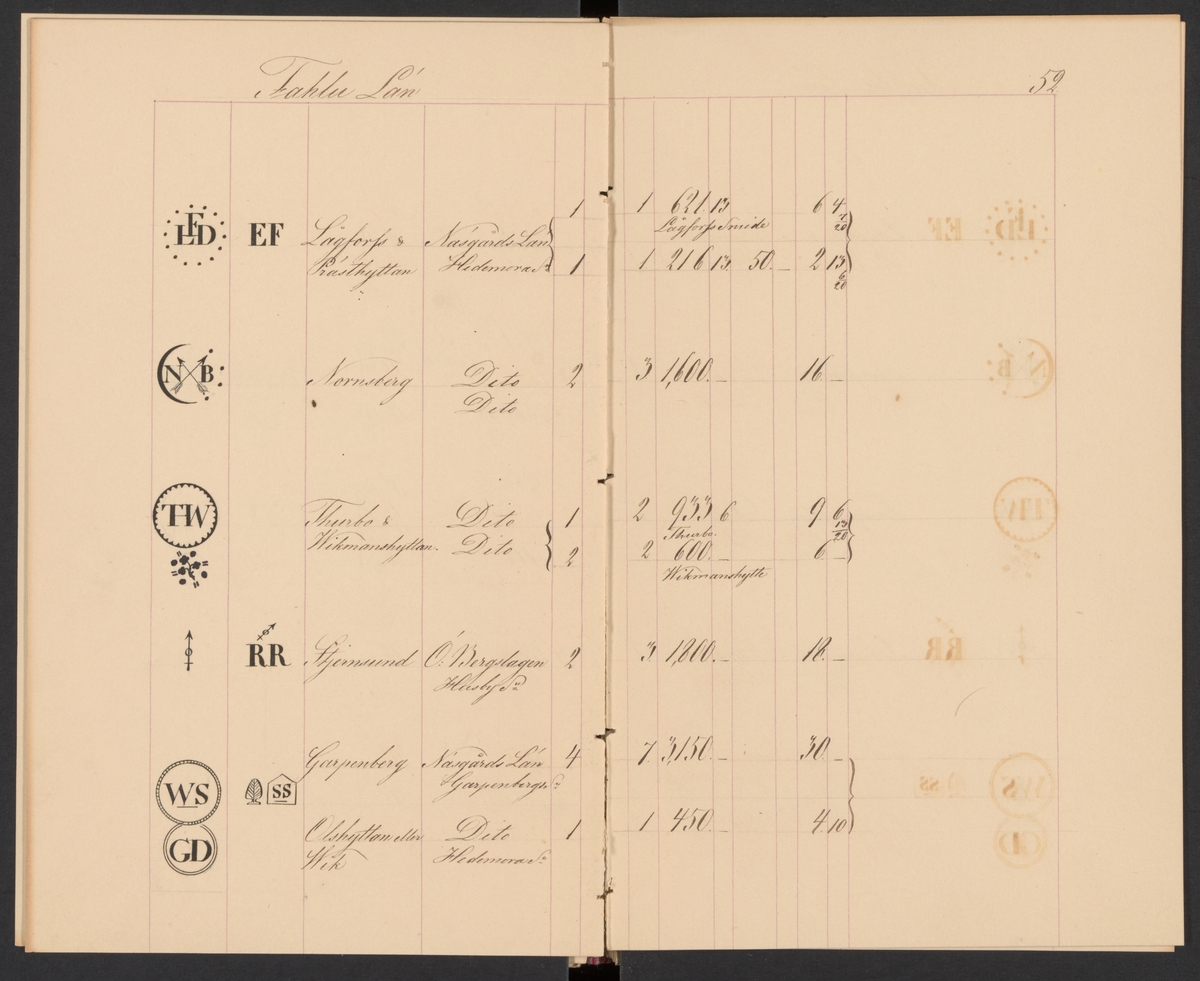 Fahlu Län 52
1 1 621.13 6 4 7/20
LFD EF Lågforss & Näsgårds Län Lågforss Smide
Prästhyttan Hedemora Sn 1 1 216 13 50. — 2 13 6/20
N B Nornsberg Dito 2 3 1,600. — 16. —
Dito
THW Thurbo & Dito 1 2 933 6 9 6 13/20
Thurbo.
Wikmanshyttan. Dito 2 2 600. — 6. —
Wikmanshytte
RR Stjernsund Ö. Bergslagen 2 3 1,800. — 18. —
Husby Sn
Garpenberg Näsgårds Län 4 7 3,150. — 30. —
WS SS Garpenbergs Sn
GD Olshyttan eller Dito 1 1 450. — 4. 10
Wik Hedemora Sn